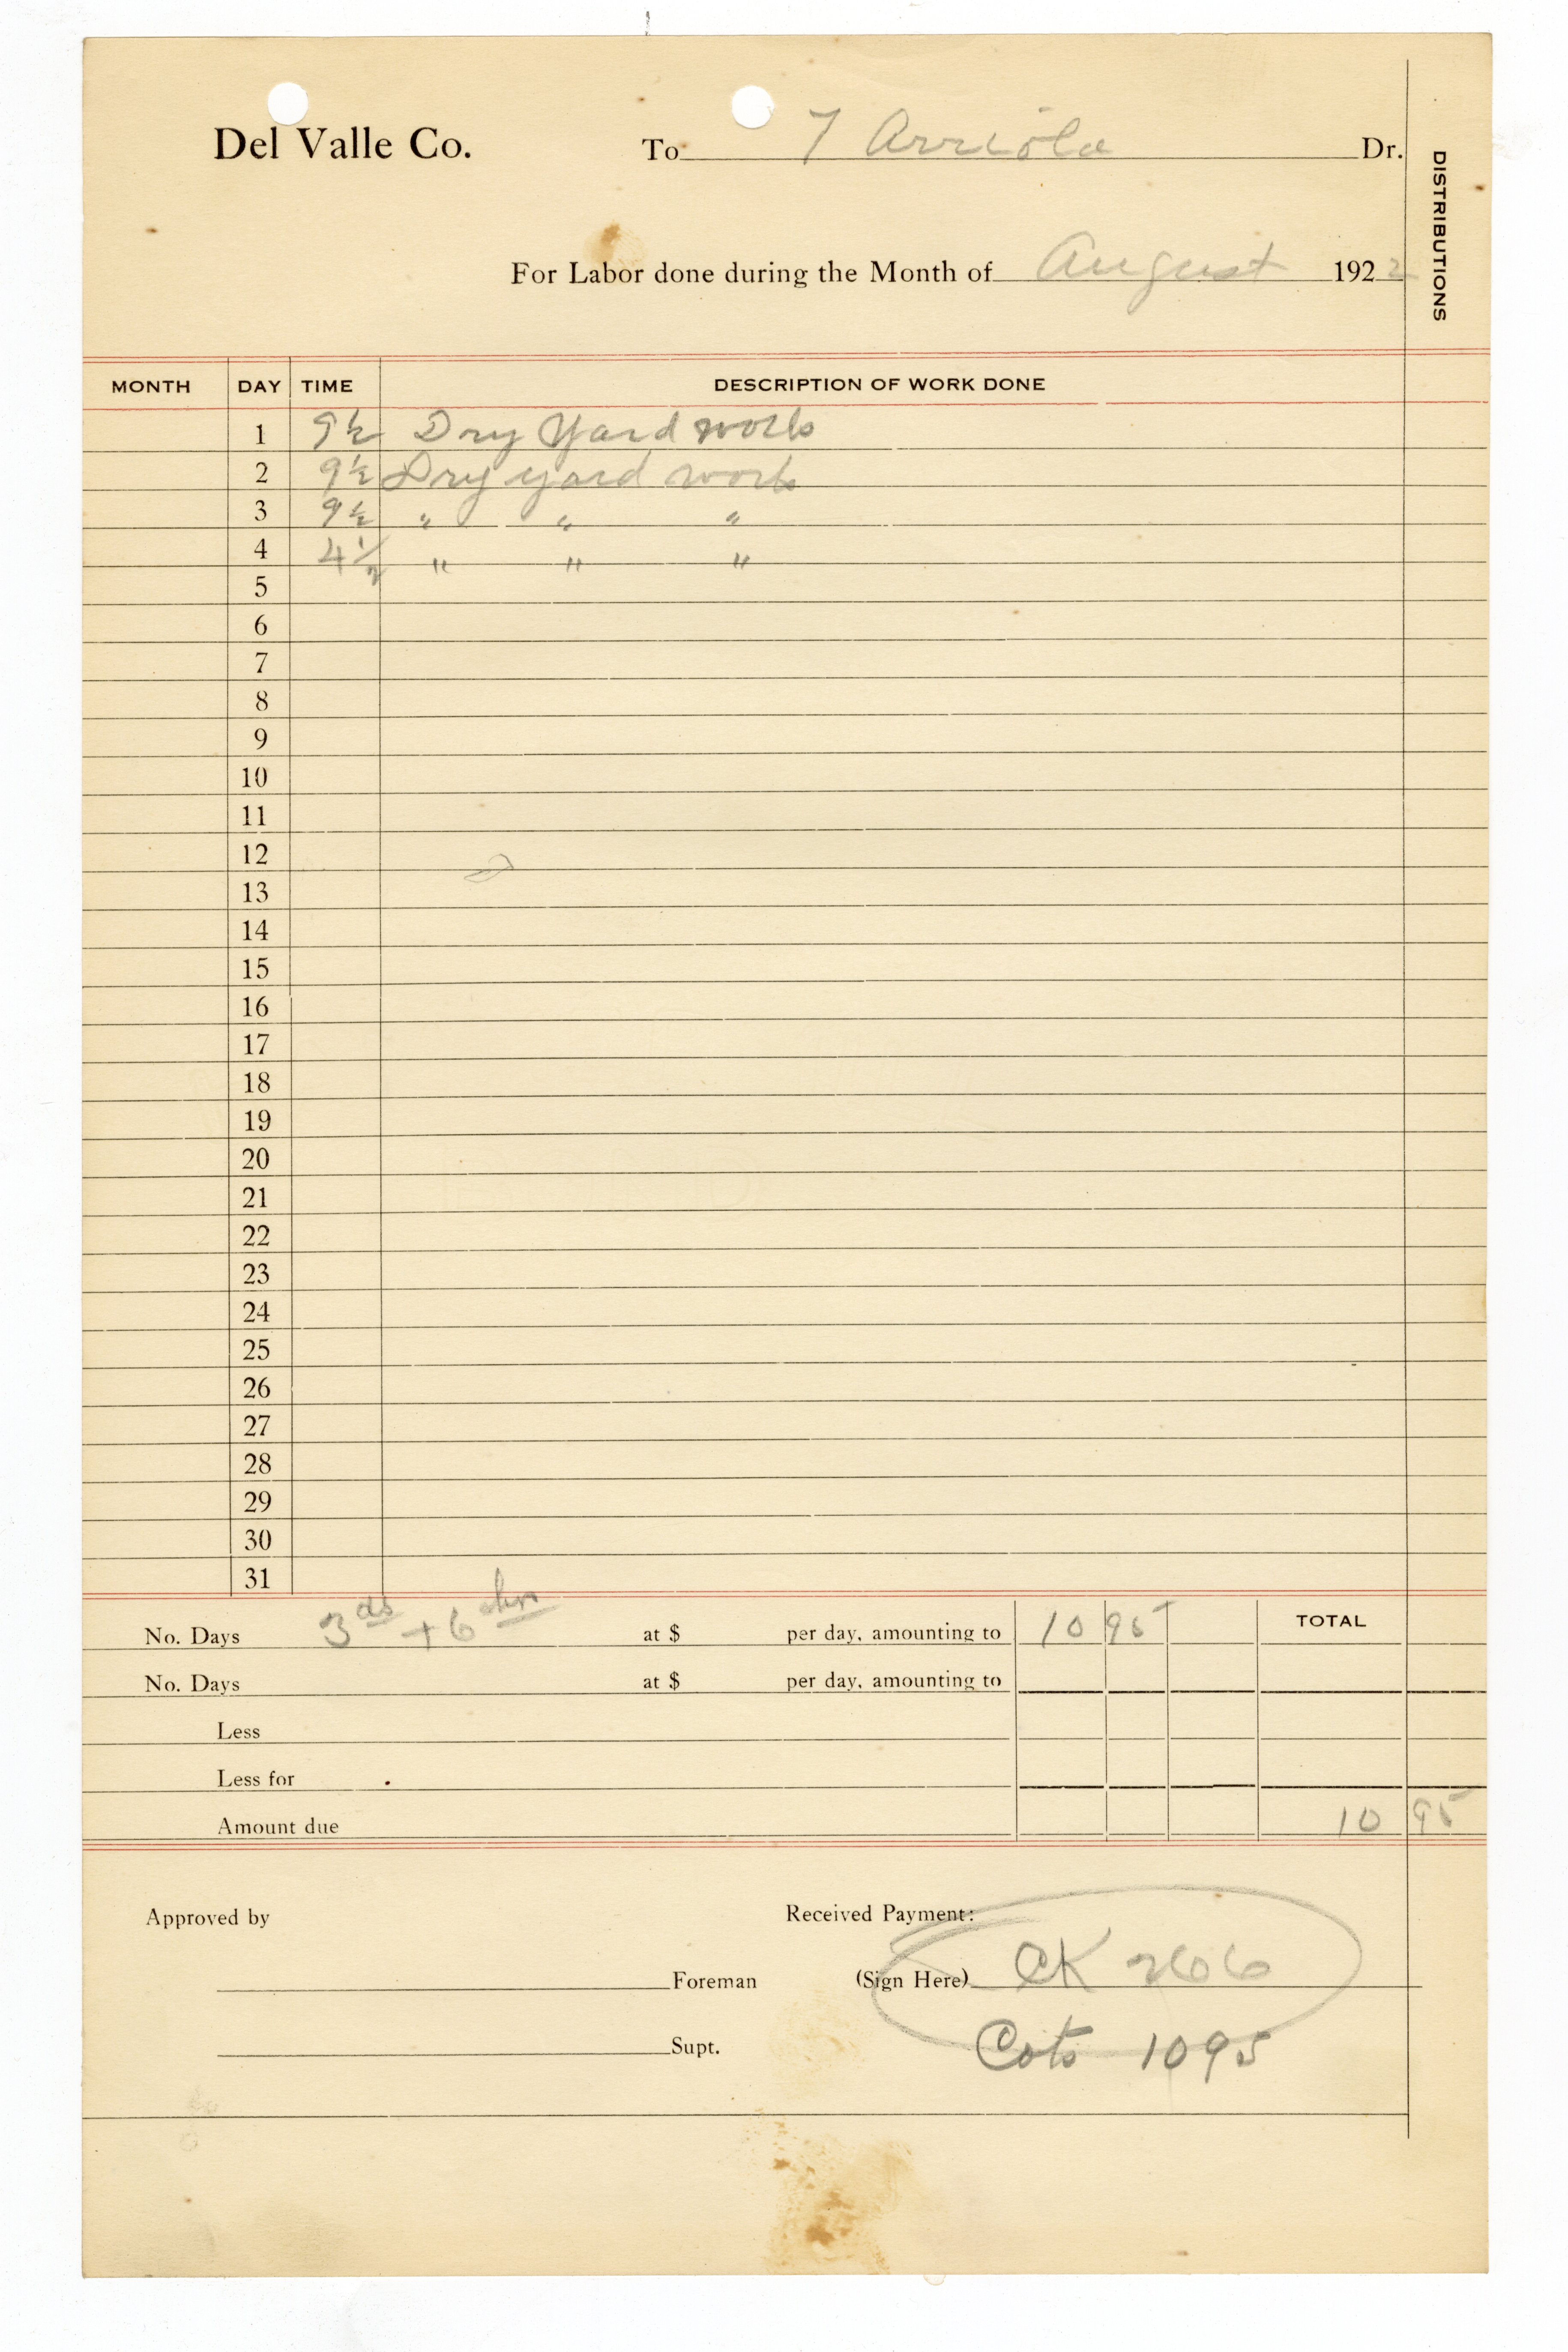 Del Valle Co. To 7 Arriola Dr.
DISTRIBUTIONS
For Labor done during the Month of August 1922
MONTH DAY TIME DESCRIPTION OF WORK DONE
1 9½ Dry Yard work
2 9½ Dry yard work
3 9½ " " "
4 4½ " " "
5
6
7
8
9
10
11
12
13
14
15
16
17
18
19
20
21
22
23
24
25
26
27
28
29
30
31
No. Days 3 ds + 6 hrs at $ per day, amounting to 10 95 TOTAL
No. Days at $ per day, amounting to
Less
Less for
Amount due 10 95
Approved by Received Payment:
Foreman (Sign Here) CK 266
Supt. Cots 1095